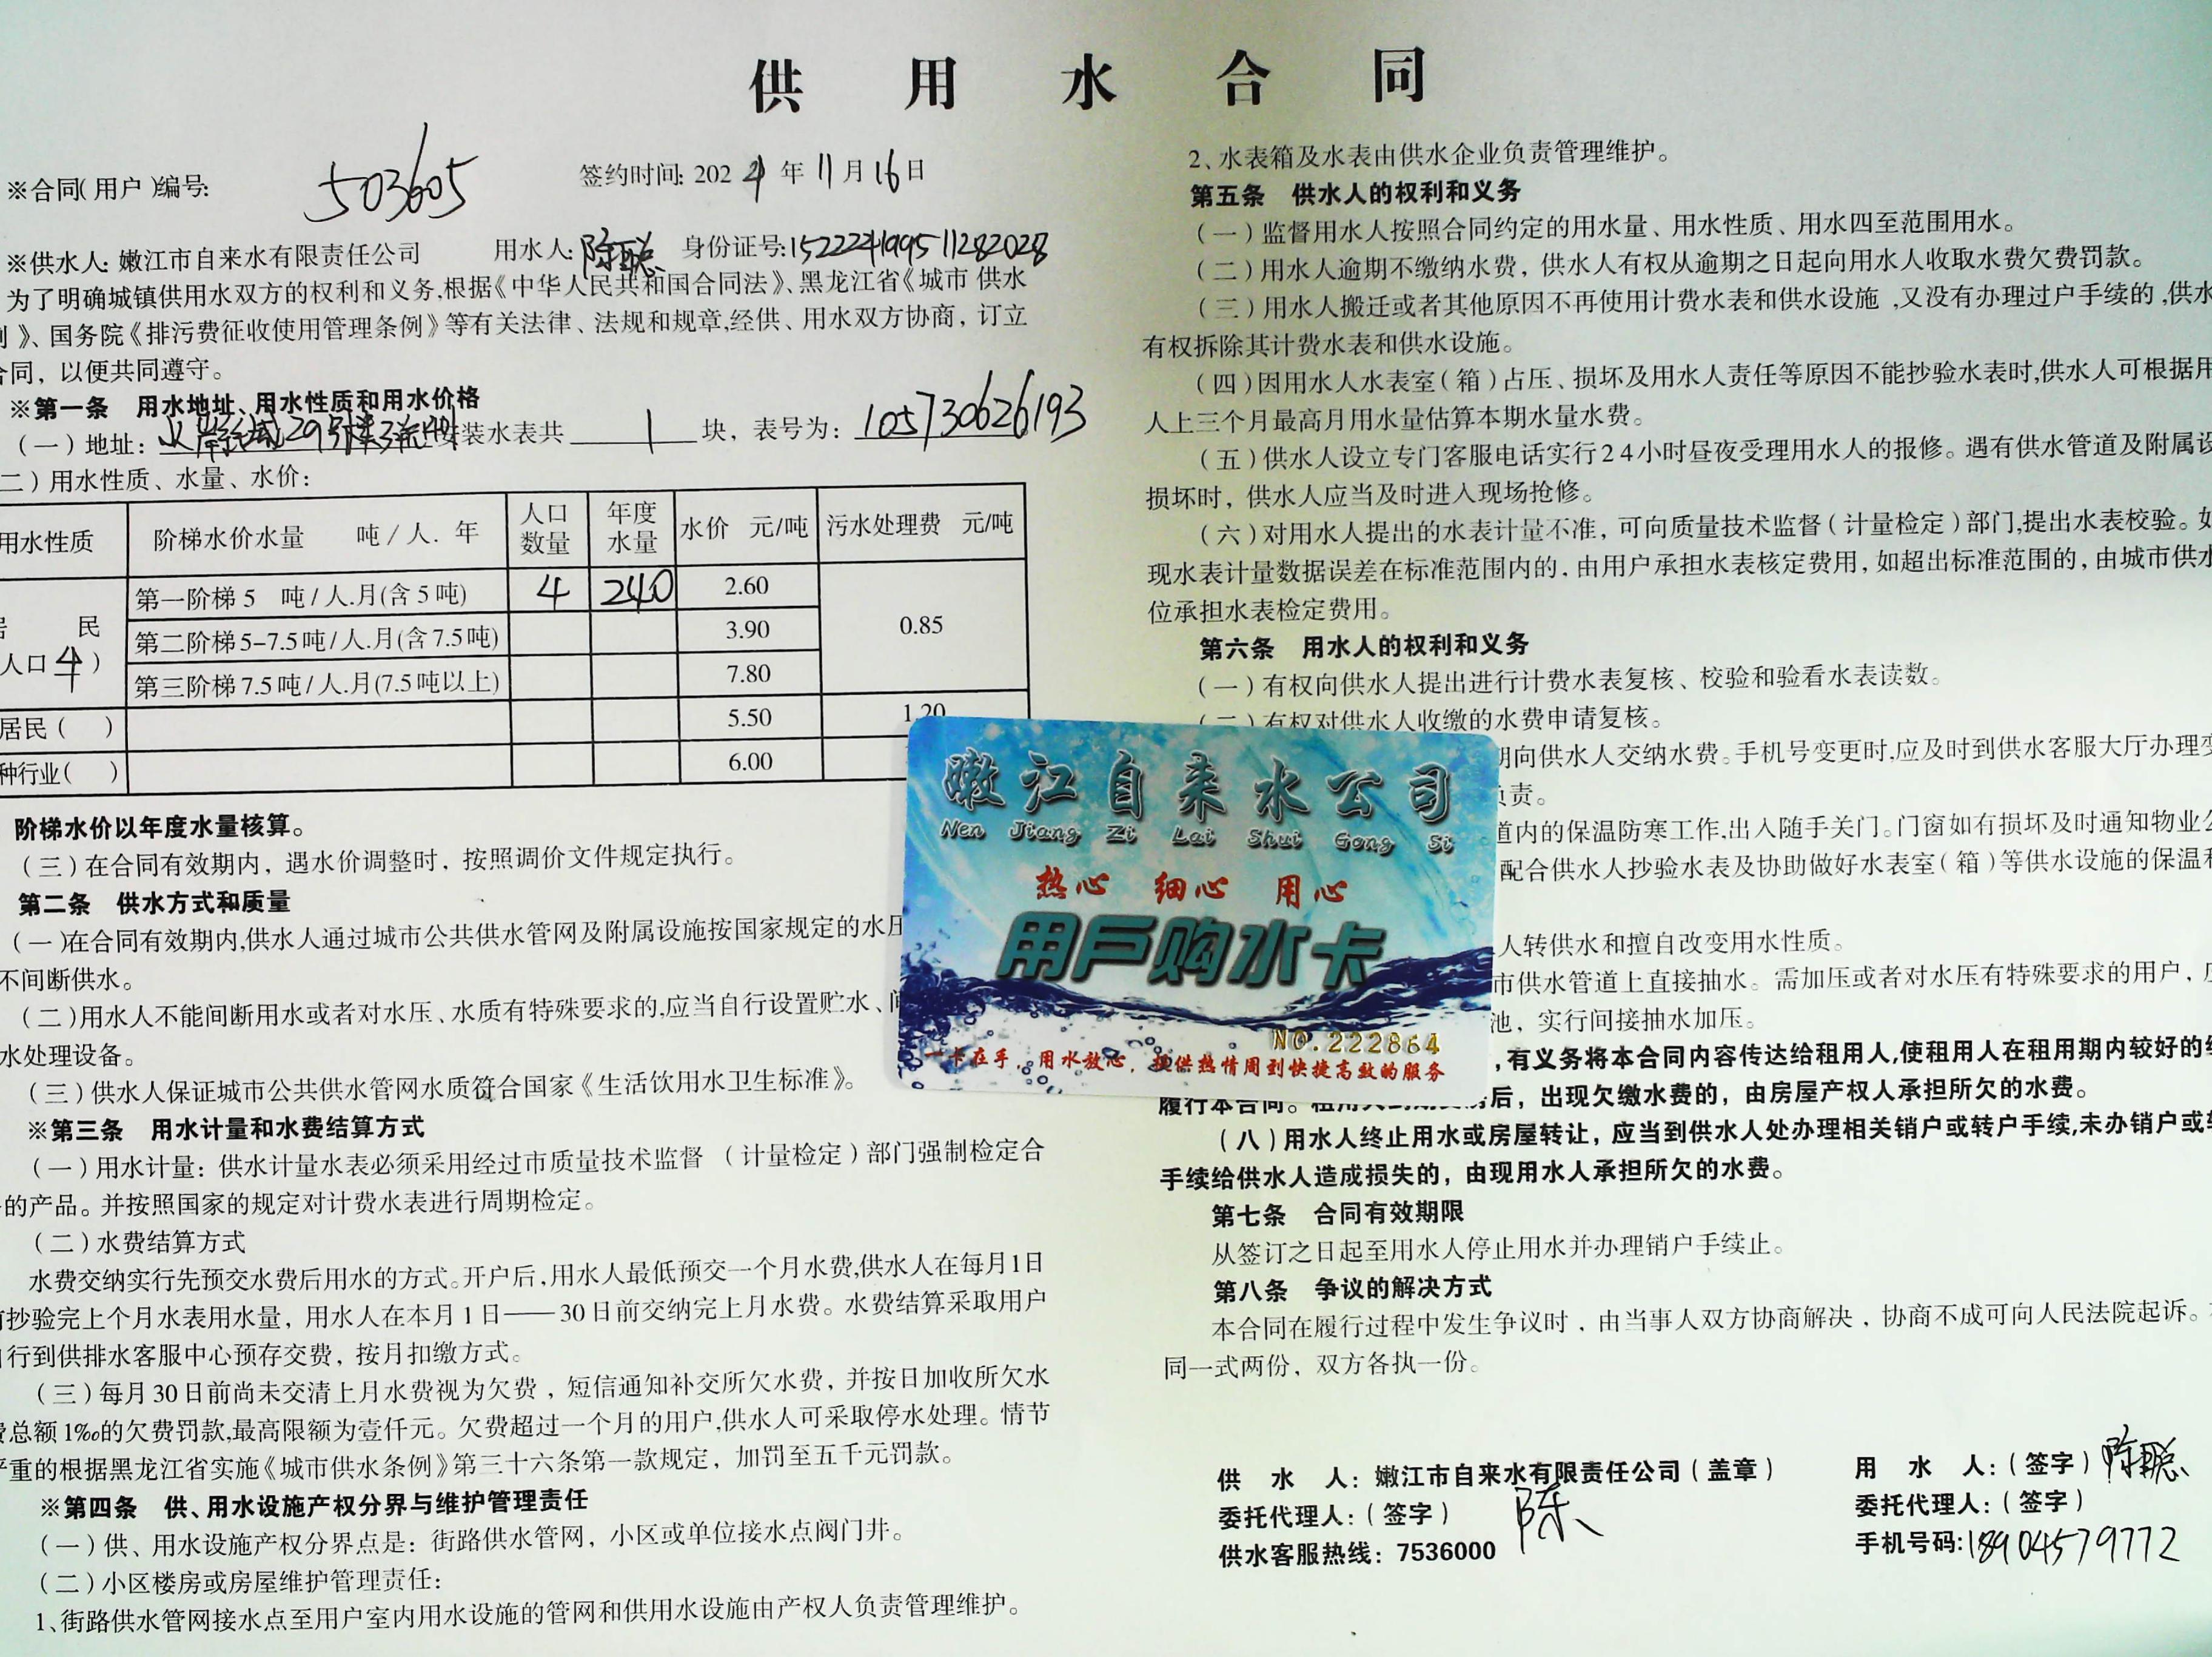 供用水合同
※合同(用户)编号: 503605 签约时间: 2024年11月16日
※供水人: 嫩江市自来水有限责任公司 用水人: 陈聪 身份证号:152224199511282028
为了明确城镇供用水双方的权利和义务,根据《中华人民共和国合同法》、黑龙江省《城市 供水
》、国务院《排污费征收使用管理条例》等有关法律、法规和规章,经供、用水双方协商，订立
合同，以便共同遵守。
※第一条 用水地址、用水性质和用水价格
(一)地址: 29号楼3 安装水表共 1 块，表号为: 105730626193
二)用水性质、水量、水价:
用水性质 阶梯水价水量 吨/人. 年 人口数量 年度水量 水价 元/吨 污水处理费 元/吨
居 民 第一阶梯 5 吨/人.月(含5吨) 4 240 2.60 0.85
人口4) 第二阶梯5-7.5吨/人.月(含7.5吨) 3.90
第三阶梯7.5吨/人.月(7.5吨以上) 7.80
居民( ) 5.50 1.20
种行业( ) 6.00
阶梯水价以年度水量核算。
(三)在合同有效期内，遇水价调整时，按照调价文件规定执行。
第二条 供水方式和质量
(一)在合同有效期内,供水人通过城市公共供水管网及附属设施按国家规定的水压
不间断供水。
(二)用水人不能间断用水或者对水压、水质有特殊要求的,应当自行设置贮水、间
水处理设备。
(三)供水人保证城市公共供水管网水质符合国家《生活饮用水卫生标准》。
※第三条 用水计量和水费结算方式
(一)用水计量: 供水计量水表必须采用经过市质量技术监督 (计量检定)部门强制检定合
的产品。并按照国家的规定对计费水表进行周期检定。
(二)水费结算方式
水费交纳实行先预交水费后用水的方式。开户后,用水人最低预交一个月水费,供水人在每月1日
前抄验完上个月水表用水量，用水人在本月1日——30日前交纳完上月水费。水费结算采取用户
自行到供排水客服中心预存交费，按月扣缴方式。
(三)每月30日前尚未交清上月水费视为欠费，短信通知补交所欠水费，并按日加收所欠水
费总额1‰的欠费罚款,最高限额为壹仟元。欠费超过一个月的用户,供水人可采取停水处理。情节
严重的根据黑龙江省实施《城市供水条例》第三十六条第一款规定，加罚至五千元罚款。
※第四条 供、用水设施产权分界与维护管理责任
(一)供、用水设施产权分界点是: 街路供水管网，小区或单位接水点阀门井。
(二)小区楼房或房屋维护管理责任:
1、街路供水管网接水点至用户室内用水设施的管网和供用水设施由产权人负责管理维护。
2、水表箱及水表由供水企业负责管理维护。
第五条 供水人的权利和义务
(一)监督用水人按照合同约定的用水量、用水性质、用水四至范围用水。
(二)用水人逾期不缴纳水费，供水人有权从逾期之日起向用水人收取水费欠费罚款。
(三)用水人搬迁或者其他原因不再使用计费水表和供水设施,又没有办理过户手续的,供水
有权拆除其计费水表和供水设施。
(四)因用水人水表室(箱)占压、损坏及用水人责任等原因不能抄验水表时,供水人可根据用
人上三个月最高月用水量估算本期水量水费。
(五)供水人设立专门客服电话实行24小时昼夜受理用水人的报修。遇有供水管道及附属设
损坏时，供水人应当及时进入现场抢修。
(六)对用水人提出的水表计量不准，可向质量技术监督(计量检定)部门,提出水表校验。如
现水表计量数据误差在标准范围内的，由用户承担水表核定费用，如超出标准范围的，由城市供水
位承担水表检定费用。
第六条 用水人的权利和义务
(一)有权向供水人提出进行计费水表复核、校验和验看水表读数。
(二)有权对供水人收缴的水费申请复核。
期向供水人交纳水费。手机号变更时,应及时到供水客服大厅办理变
负责。
道内的保温防寒工作,出入随手关门。门窗如有损坏及时通知物业公
配合供水人抄验水表及协助做好水表室(箱)等供水设施的保温和
人转供水和擅自改变用水性质。
市供水管道上直接抽水。需加压或者对水压有特殊要求的用户，应
池，实行间接抽水加压。
,有义务将本合同内容传达给租用人,使租用人在租用期内较好的
履行本合同。后，出现欠缴水费的，由房屋产权人承担所欠的水费。
(八)用水人终止用水或房屋转让，应当到供水人处办理相关销户或转户手续,未办销户或转
手续给供水人造成损失的，由现用水人承担所欠的水费。
第七条 合同有效期限
从签订之日起至用水人停止用水并办理销户手续止。
第八条 争议的解决方式
本合同在履行过程中发生争议时，由当事人双方协商解决，协商不成可向人民法院起诉。
同一式两份，双方各执一份。
供 水 人: 嫩江市自来水有限责任公司(盖章) 用 水 人:(签字) 陈聪
委托代理人:(签字) 陈 委托代理人:(签字)
供水客服热线: 7536000 手机号码:18904579772
嫩江自来水公司
Nen Jiang Zi Lai Shui Gong Si
热心 细心 用心
用户购水卡
NO.222864
一卡在手，用水放心，提供热情周到快捷高效的服务